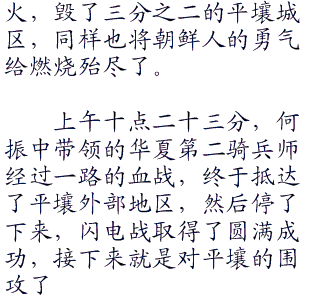 火，毁了三分之二的平壤城
区，同样也将朝鲜人的勇气
给燃烧殆尽了。
上午十点二十三分，何
振中带领的华夏第二骑兵师
经过一路的血战，终于抵达
了平壤外部地区，然后停了
下来，闪电战取得了圆满成
功，接下来就是对平壤的围
攻了